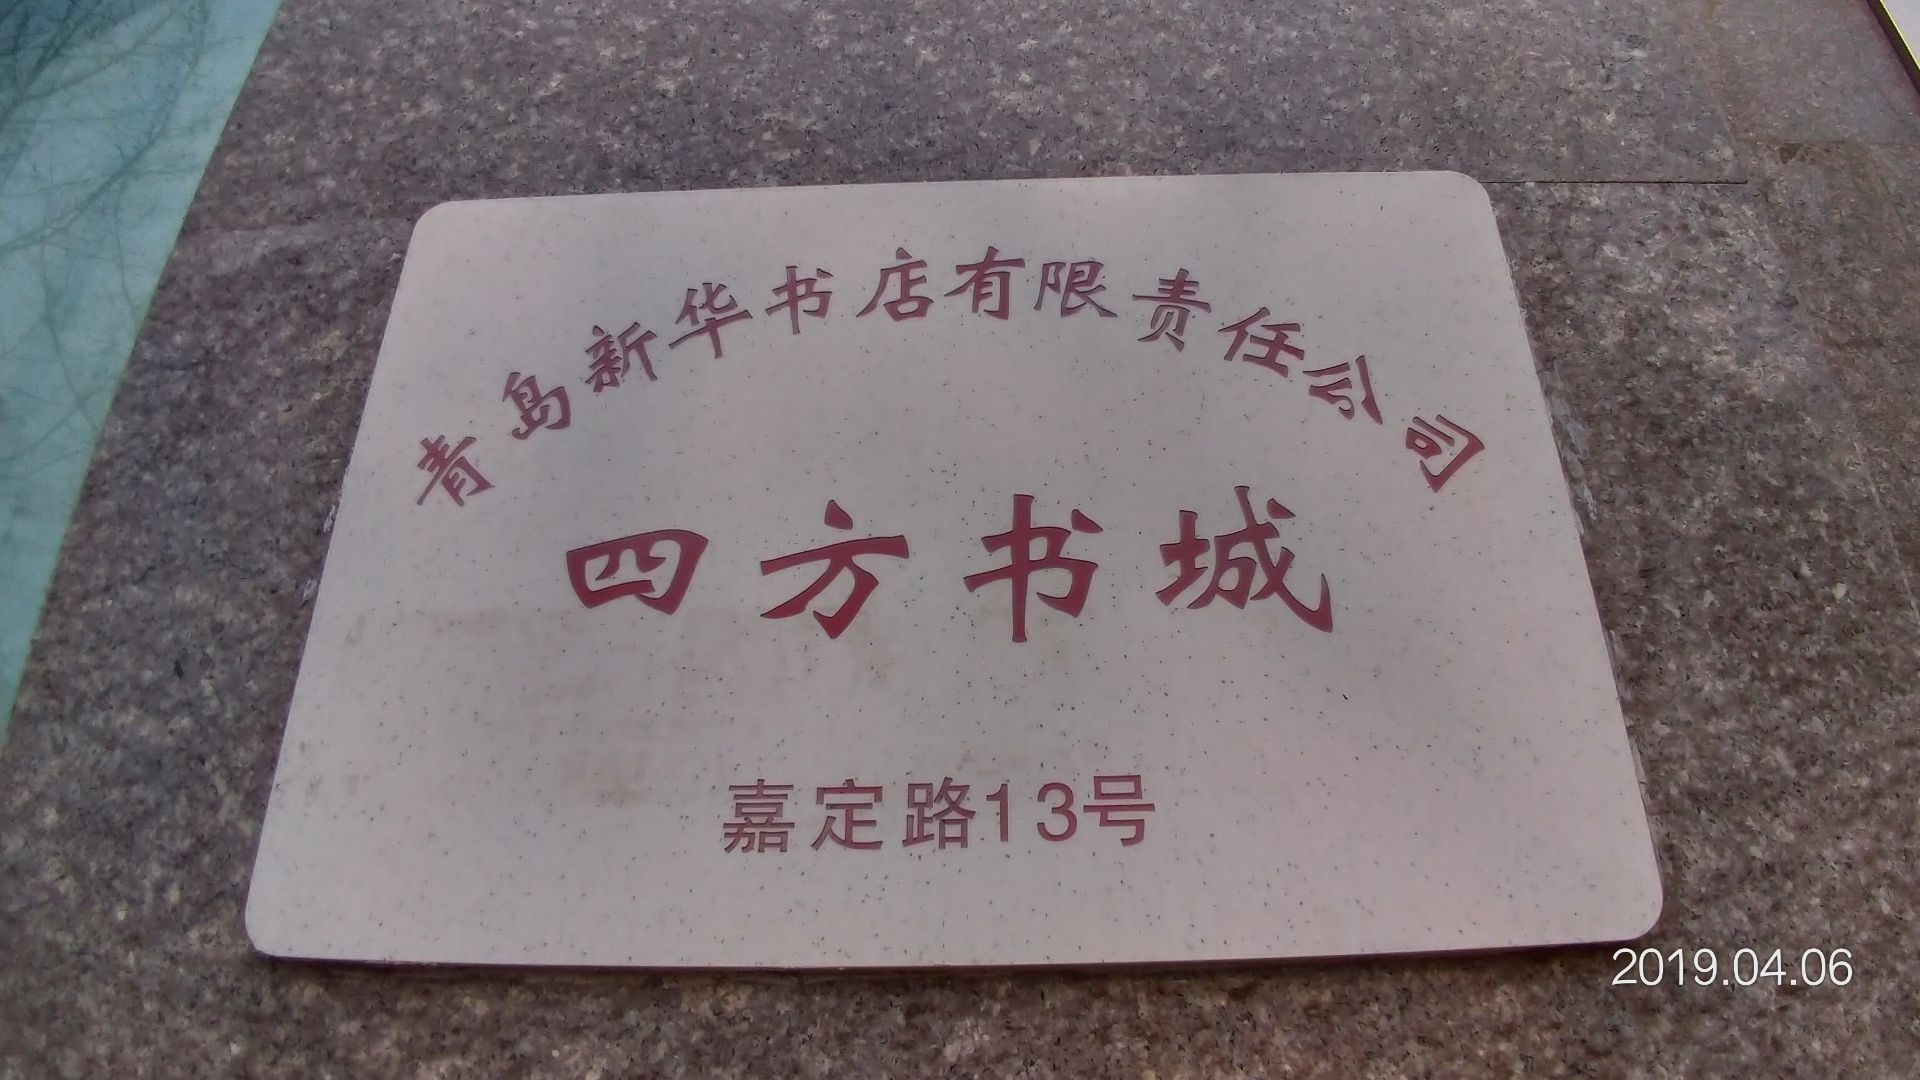 青岛新华书店有限责任公司
四方书城
嘉定路13号
2019.04.06